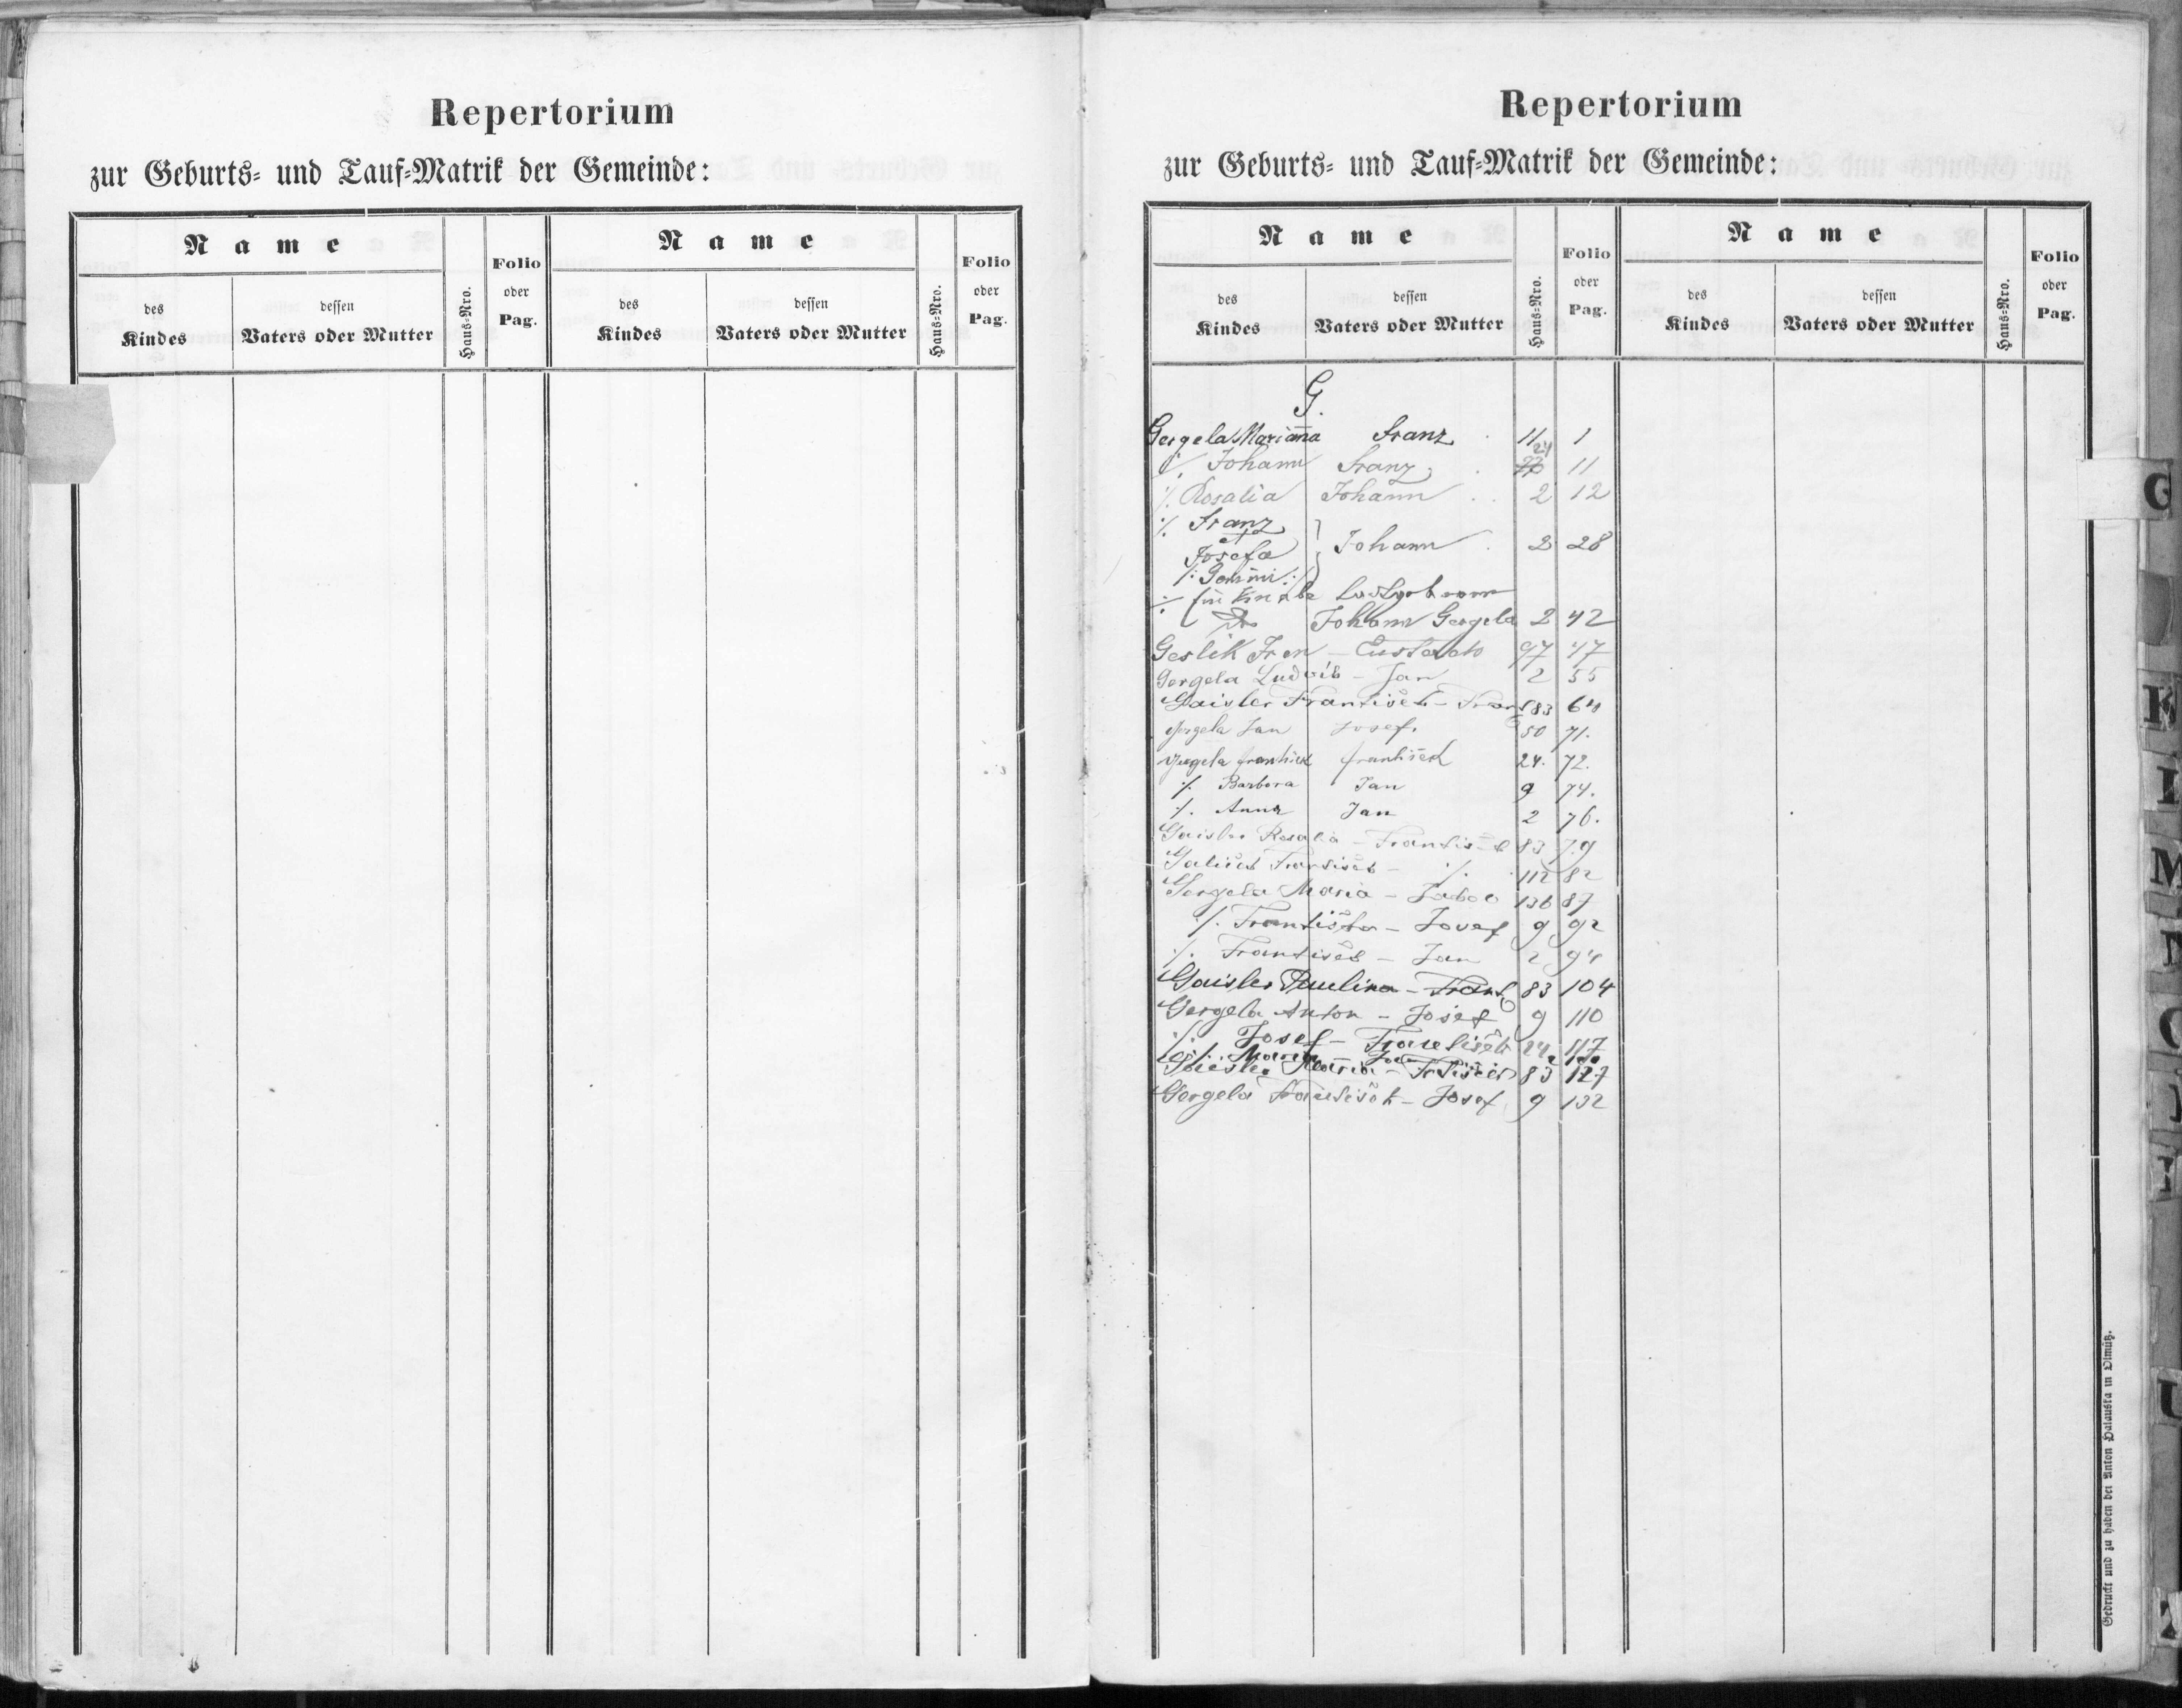 Repertorium
zur Geburts- und Tauf-Matrik der Gemeinde:
Name Haus-Nro. Folio oder Pag. Name Haus-Nro. Folio oder Pag.
des Kindes dessen Vaters oder Mutter des Kindes dessen Vaters oder Mutter
Repertorium
zur Geburts- und Tauf-Matrik der Gemeinde:
Name Haus-Nro. Folio oder Pag. Name Haus-Nro. Folio oder Pag.
des Kindes dessen Vaters oder Mutter des Kindes dessen Vaters oder Mutter
G.
Gergela Mariana Franz 11 1
./. Johann Franz 24 11
./. Rosalia Johann 2 12
./. Franz
et
Josefa Johann 2 28
/: Gemini :/
Johann Gergela 2 42
Geslik Fran 97 47
Gergela Ludvík - Jan 2 55
Gaisler František - Frant 83 64
Gergela Jan Josef. 50 71.
Gergela František František 24. 72.
./. Barbora Jan 9 74.
./. Anna Jan 2 76.
Gaisler Rosalia - František 83 79
František - ./. 112 82
Gergela Maria - Jakob 136 87
./. Františka - Josef 9 92
./. František - Jan 2 94
Gaisler Paulina - Frant 83 104
Gergela Anton - Josef 9 110
./. Josef - František 24 117
./. Maria Jan 2
Maria - 83 127
Gergela František - Josef 9 132
G
K
M
N
U
Gedruckt und zu haben bei Anton Halauska in Olmütz.